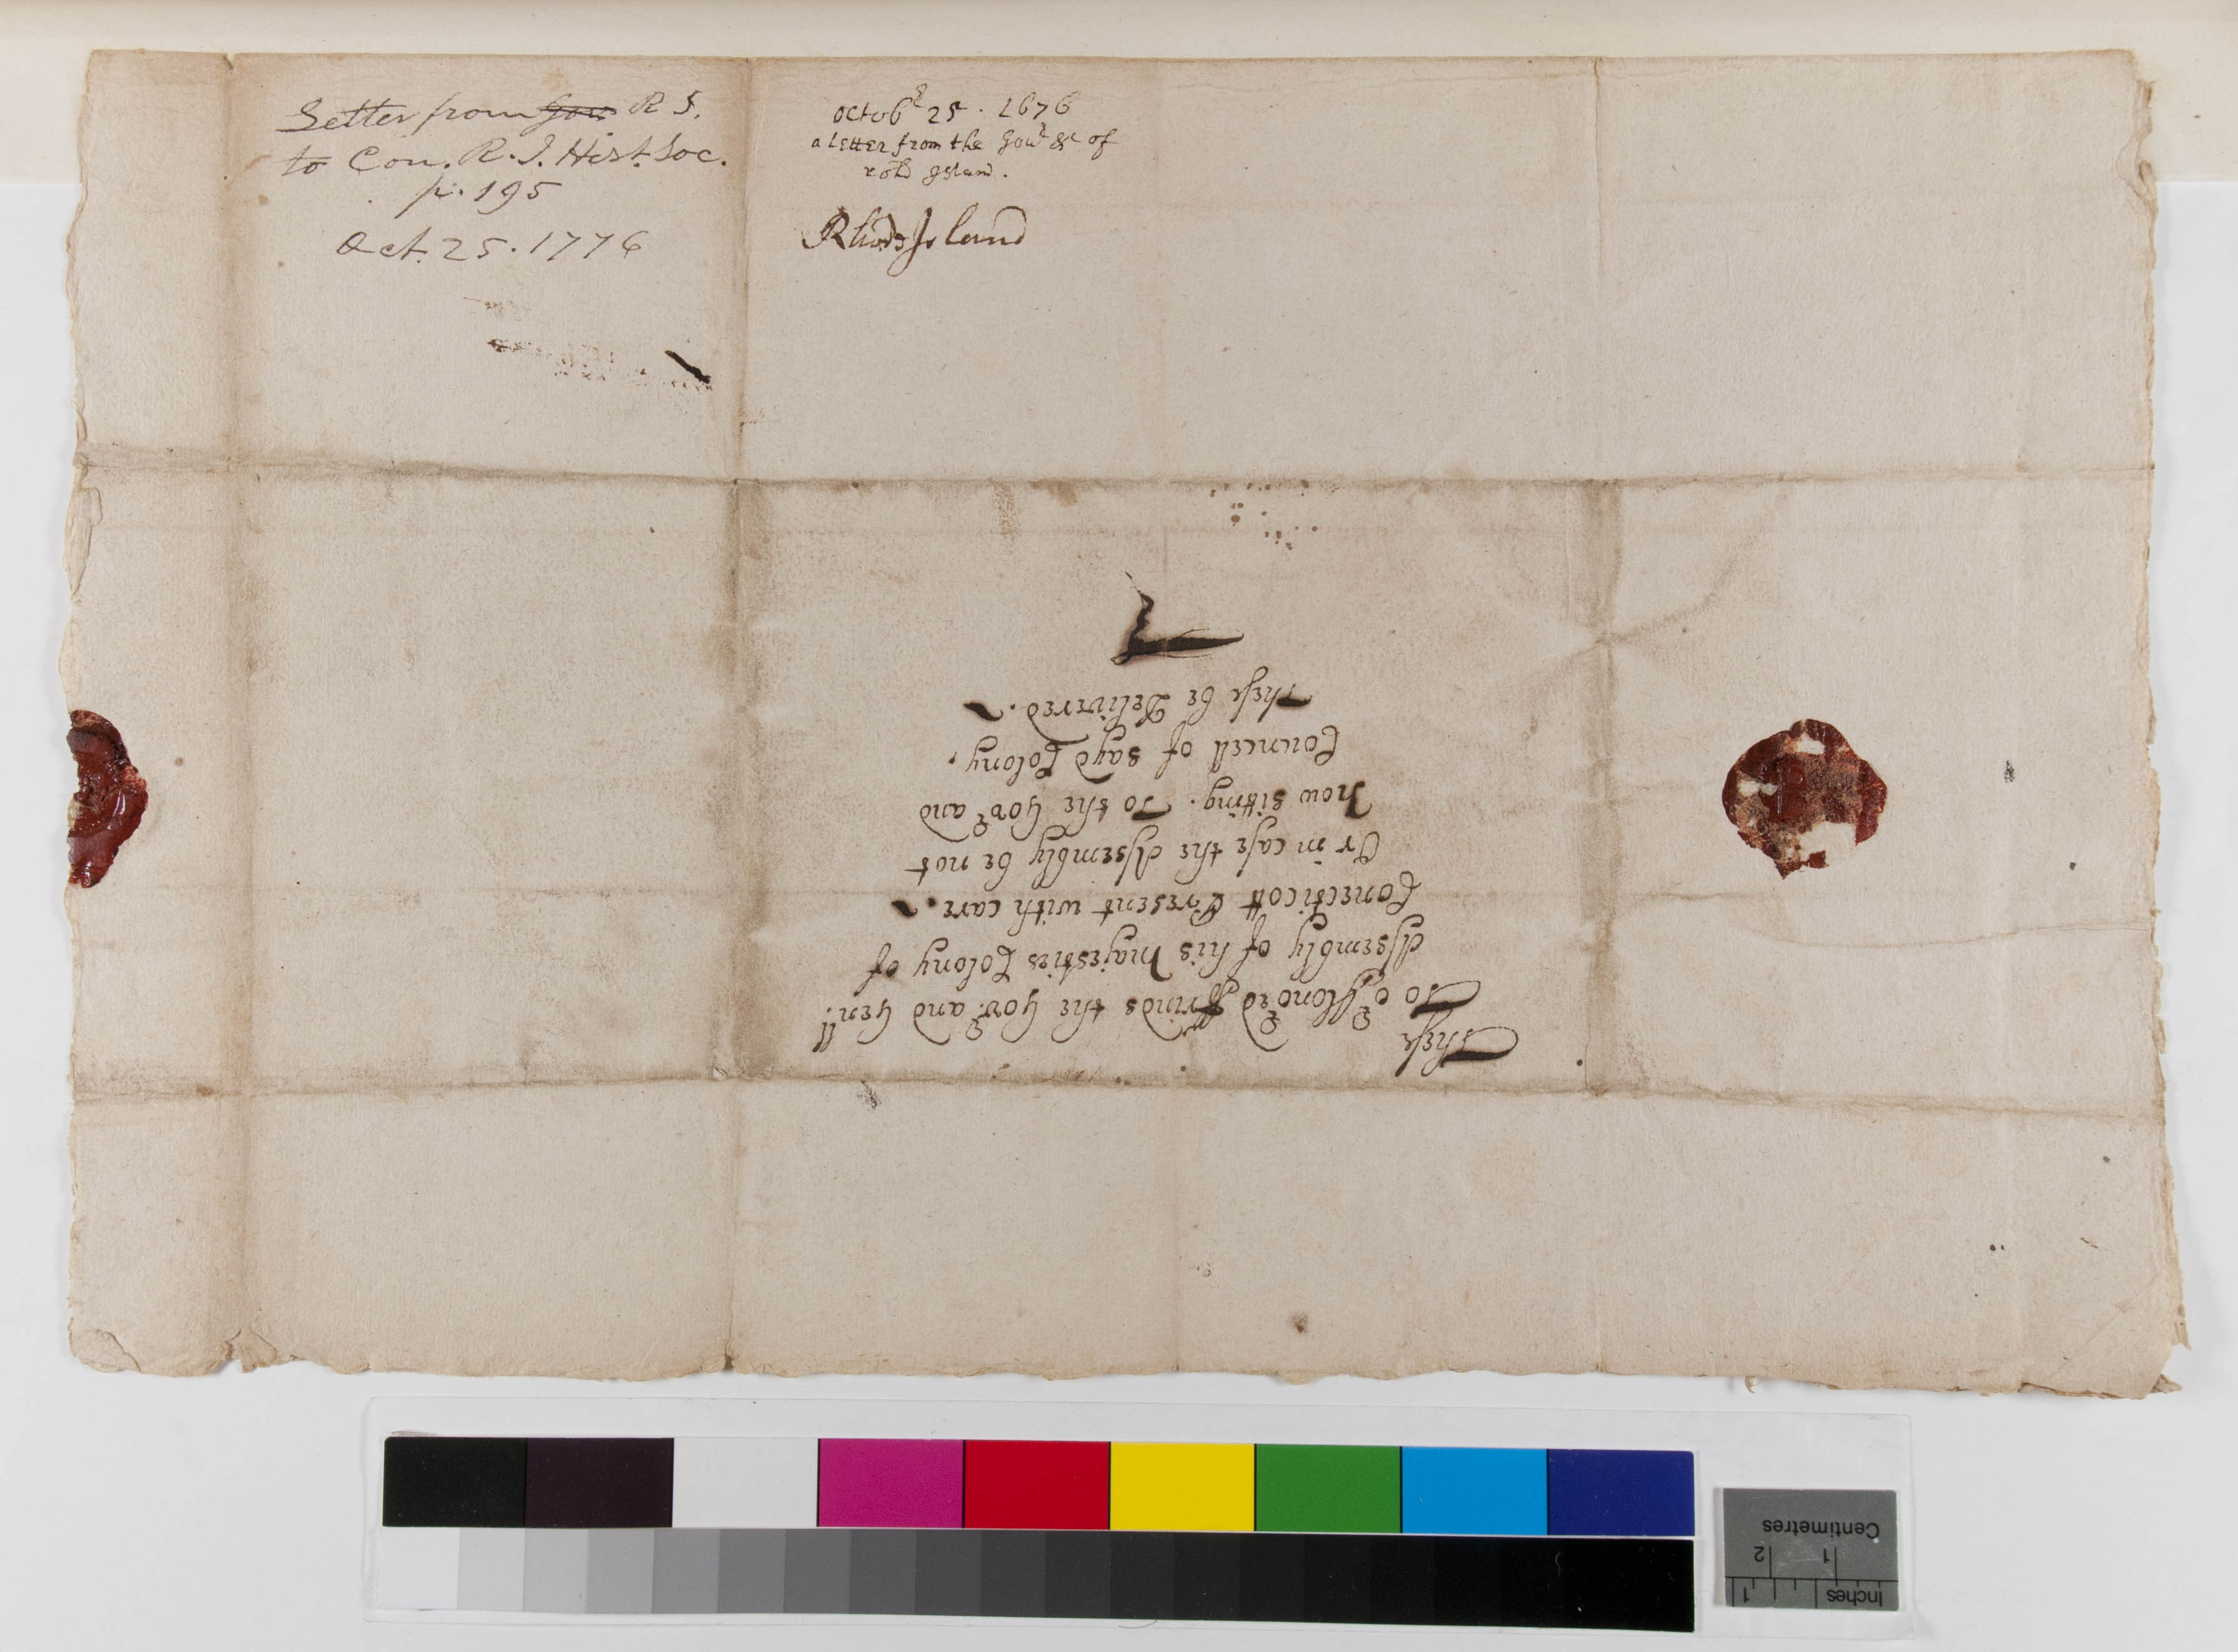 Letter from Gov. R I.
to Con. R. I. Hist. Soc.
p. 195
Oct. 25. 1776
Octobr 25. 1676
a Letter from the Govr &c of
rohd Island.
Rhode Island
These
To or Honored ffrinds the Govr and Genll
Assembly of his Majesties Colony of
Conecticott Present with care.
Or in case the Assembly be not
now sitting. To the Govr and
Councell of sayd Colony.
These be Delivered.
Centimetres
1 2
Inches
1